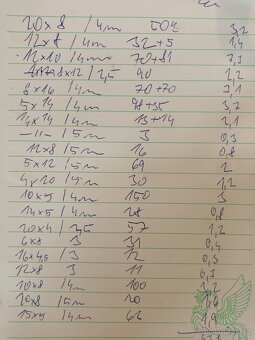 20 x 8 /4m 50 3,2
12 x 8 /4m 32+5 1,4
12 x 10 /4m 70+81 7,3
8 x 12 / 2,5 90 1,2
8 x 16 /4m 70+70 7,1
5 x 14 /4m 98+35 3,7
14 x 14 /4m 13+14 2,1
-11- /5m 3 0,3
12 x 8 /5m 16 0,8
5 x 12 /5m 69 2
4 x 20 /5m 30 1,2
10 x 5 /4m 150 3
14 x 5 /4m 28 0,8
20 x 4 / 2,5 57 1,2
6 x 8 /3 31 0,4
16 x 4,5 /3 12 0,3
12 x 8 /3 11 0,3
10 x 8 /4m 100 3,2
20 x 8 /5m 20 1,6
15 x 5 /4m 63 1,9